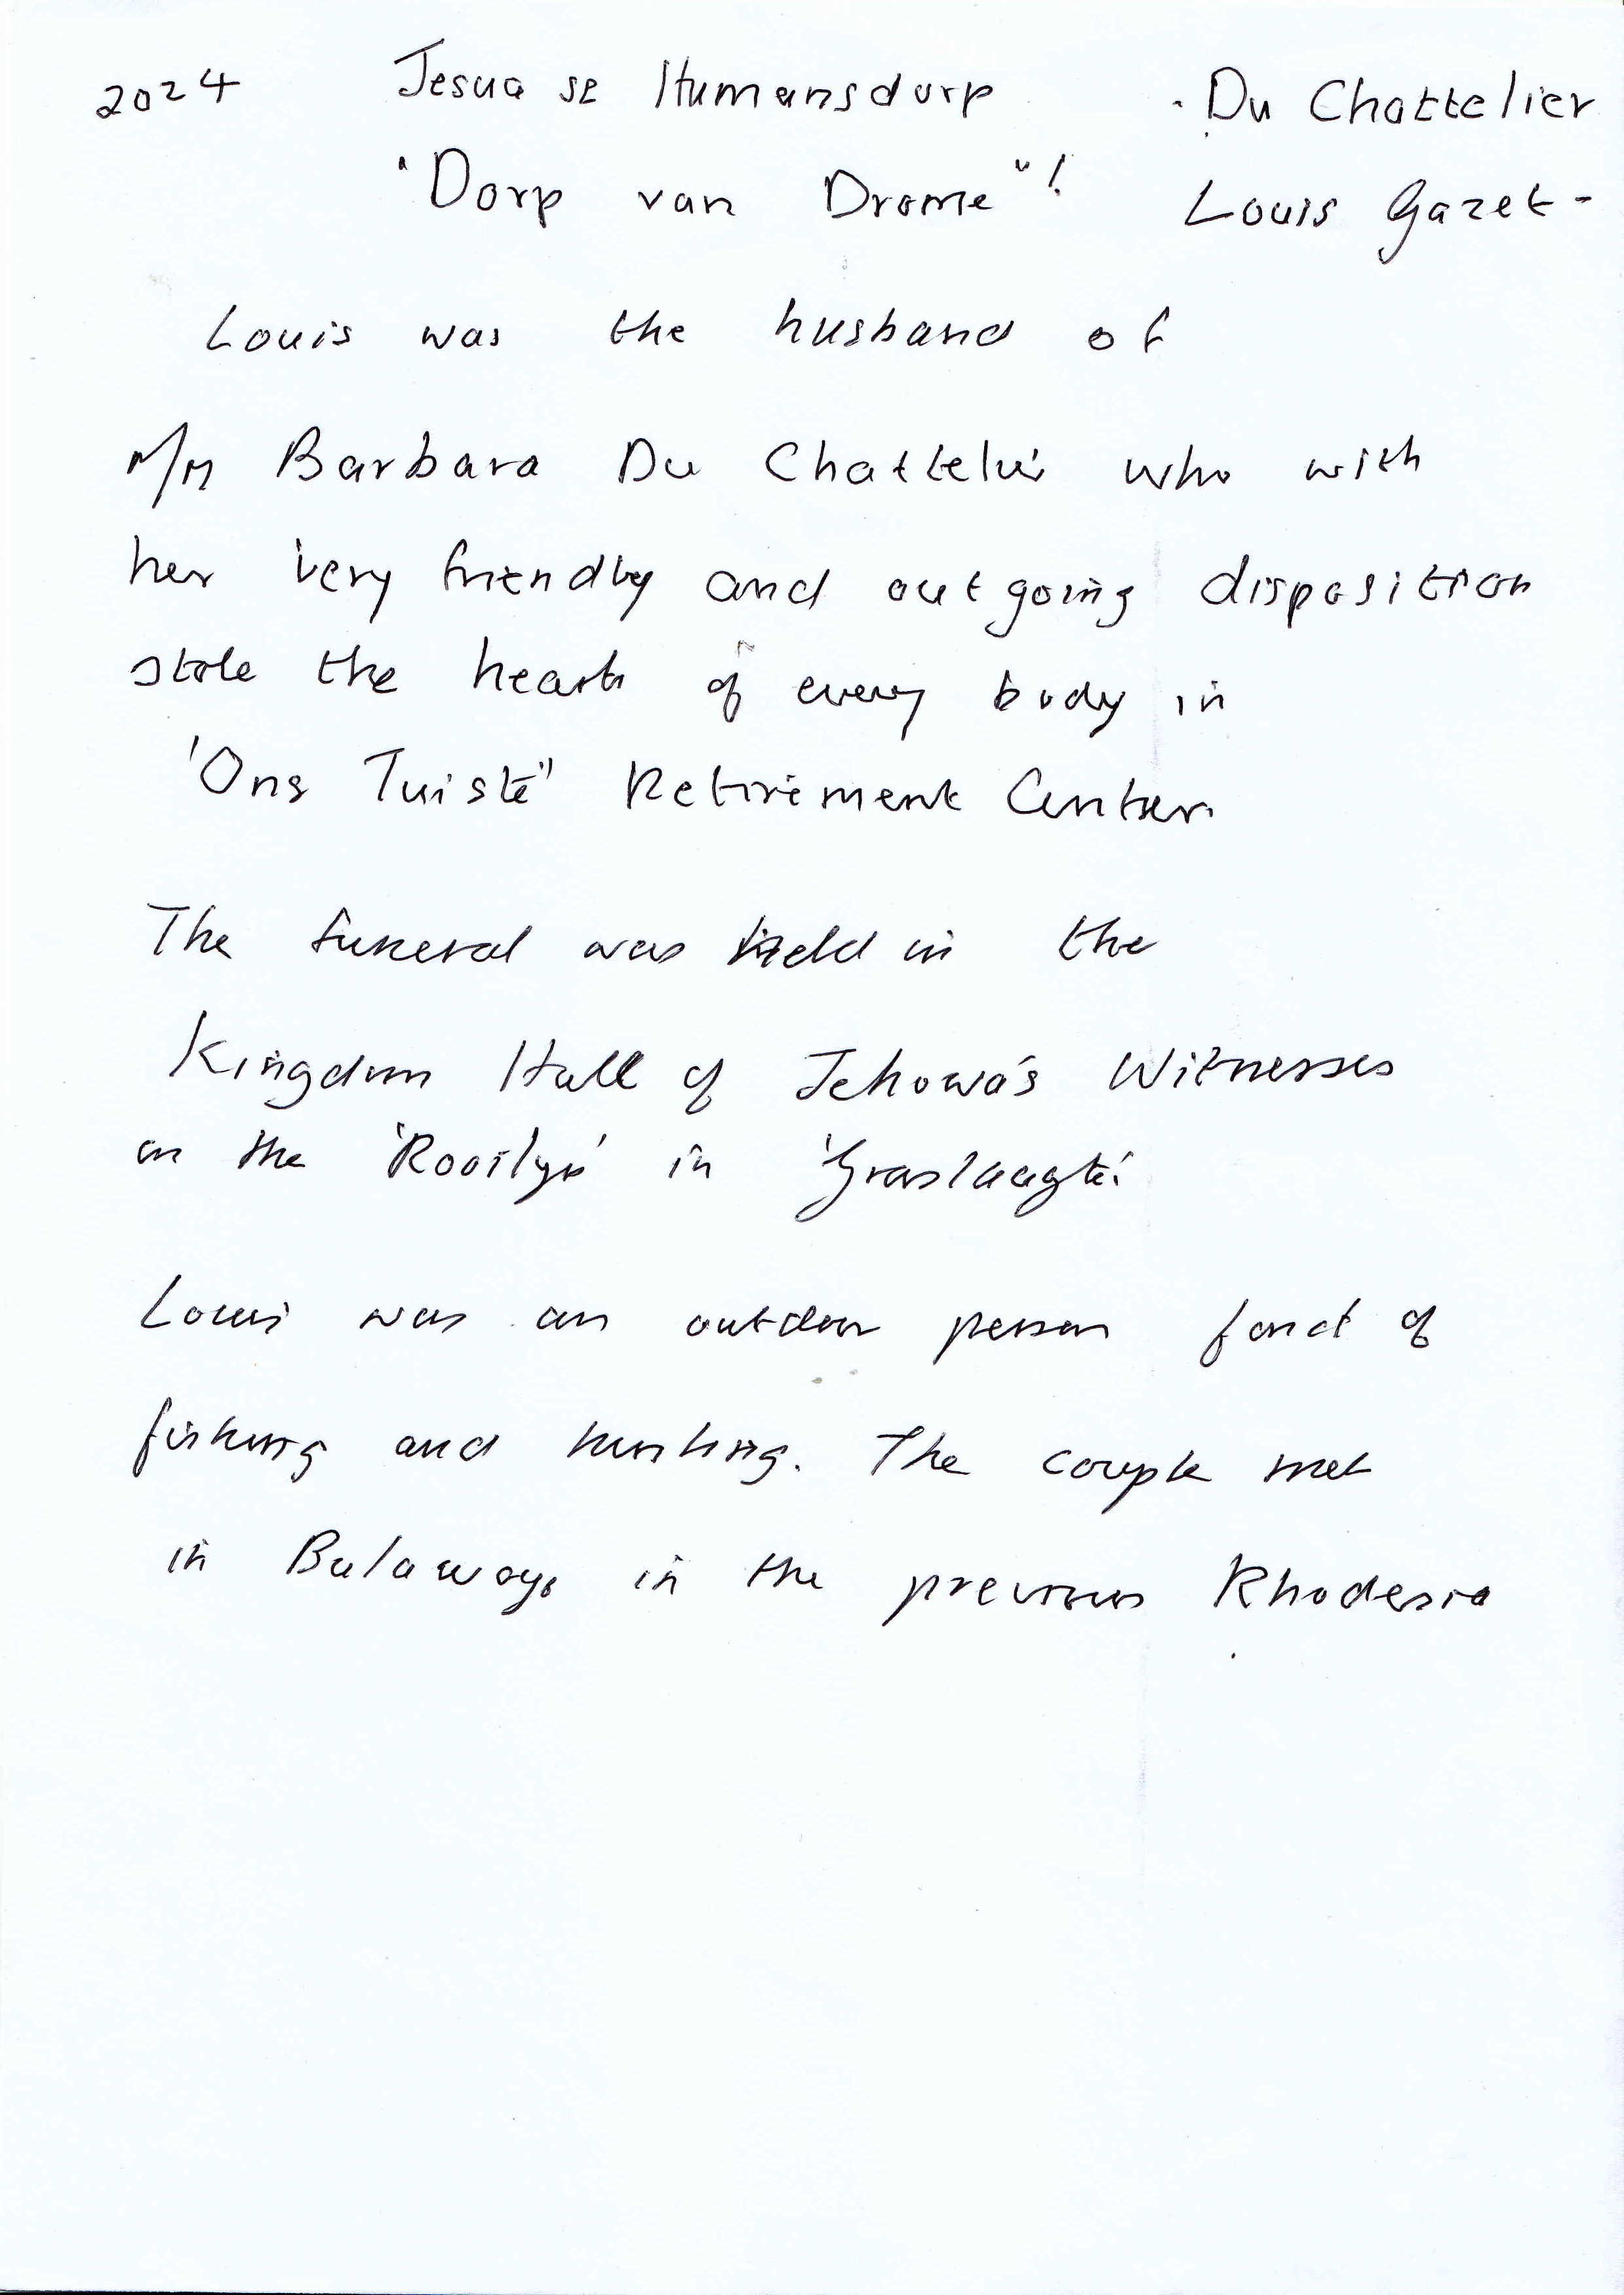 2024 Jesua se Humansdorp Du Chattelier
"Dorp van Drome"! Louis Gazet-
Louis was the husband of
M/M Barbara Du Chattelier who with
her very friendly and outgoing disposition
stole the hearts of every body in
'Ons Tuiste" Retirement Center.
The funeral was held in the
Kingdom Hall of Jehowa's Witnesses
on the 'Rooilyn' in 'Graslaagte'
Louis was an outdoor person fond of
fishing and hunting. The couple met
in Bulawayo in the previous Rhodesia